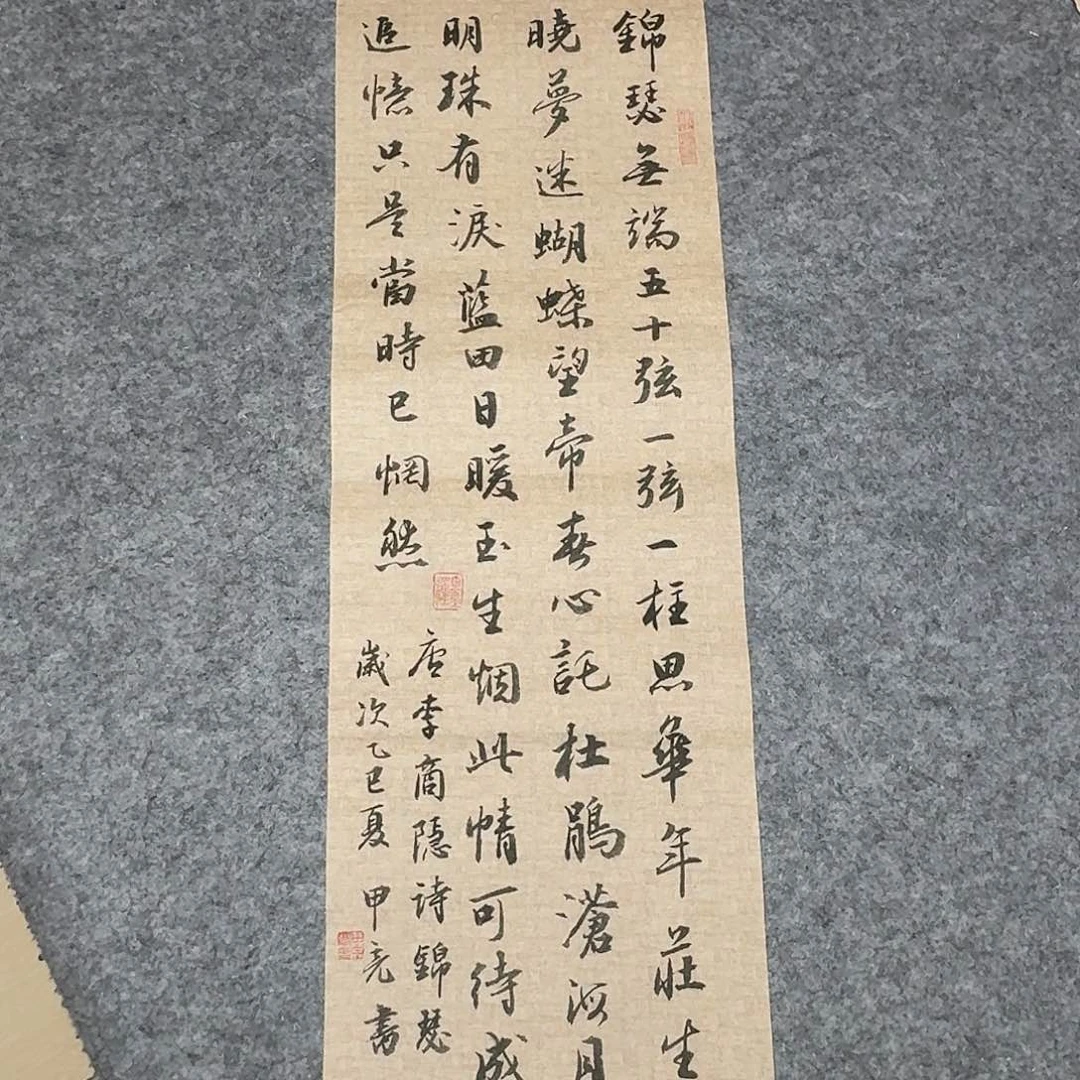 錦瑟無端五十弦一弦一柱思華年莊生
曉夢迷蝴蝶望帝春心託杜鵑滄海月
明珠有淚藍田日暖玉生烟此情可待成
追憶只是當時已惘然
唐李商隱詩錦瑟
歲次乙巳夏甲亮書